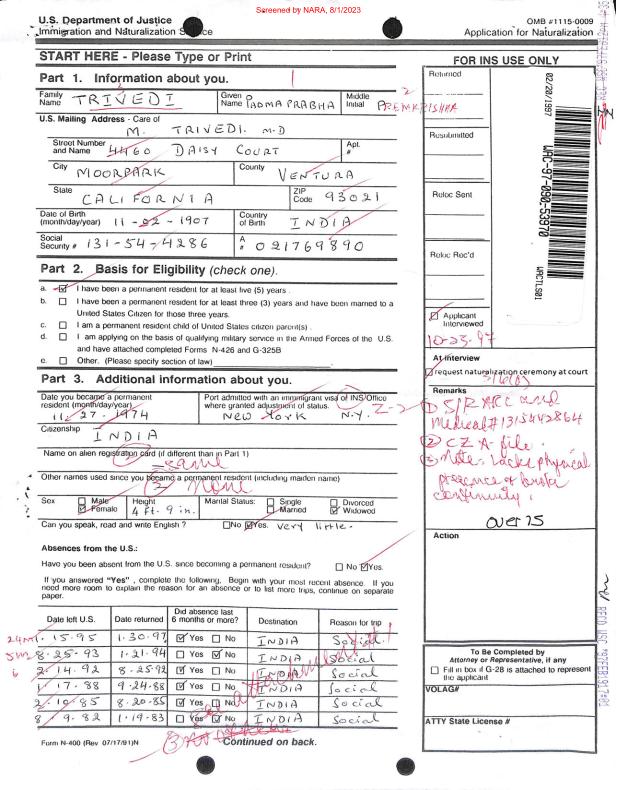 Screened by NARA, 8/1/2023
U.S. Department of Justice
Immigration and Naturalization Service
OMB #1115-0009
Application for Naturalization
START HERE - Please Type or Print
FOR INS USE ONLY
Part 1. Information about you.
Family Name TRIVEDI Given Name PADMA PRABHA Middle Initial PREMKRISHNA
U.S. Mailing Address - Care of
M. TRIVEDI. M.D
Street Number and Name 4460 DAISY COURT Apt. #
City MOORPARK County VENTURA
State CALIFORNIA ZIP Code 93021
Date of Birth (month/day/year) 11-02-1907 Country of Birth INDIA
Social Security # 131-54-4286 A # 021769890
Part 2. Basis for Eligibility (check one).
a. I have been a permanent resident for at least five (5) years.
b. I have been a permanent resident for at least three (3) years and have been married to a
United States Citizen for those three years.
c. I am a permanent resident child of United States citizen parent(s).
d. I am applying on the basis of qualifying military service in the Armed Forces of the U.S.
and have attached completed Forms N-426 and G-325B
e. Other. (Please specify section of law)
Part 3. Additional information about you.
Date you became a permanent resident (month/day/year) 11-27-1974
Port admitted with an immigrant visa of INS/Office where granted adjustment of status. New York N.Y.
Citizenship
INDIA
Name on alien registration card (if different than in Part 1)
same
Other names used since you became a permanent resident (including maiden name)
None
Sex Male Female Height 4 ft. 9 in. Marital Status: Single Married Divorced Widowed
Can you speak, read and write English ? No Yes. Very little.
Absences from the U.S.:
Have you been absent from the U.S. since becoming a permanent resident? No Yes.
If you answered "Yes" , complete the following, Begin with your most recent absence. If you
need more room to explain the reason for an absence or to list more trips, continue on separate
paper.
Date left U.S. Date returned Did absence last 6 months or more? Destination Reason for trip
1.15.95 1.30.97 Yes No INDIA Social
8-25-93 1.21.94 Yes No INDIA Social
2.14.92 8-25-92 Yes No INDIA Social
1.17.88 9-24-88 Yes No INDIA Social
2-10-85 8-20-85 Yes No INDIA Social
8-9-82 1-19-83 Yes No INDIA Social
See attachment
Form N-400 (Rev 07/17/91)N
Continued on back.
Returned
Resubmitted
Reloc Sent
Reloc Rec'd
02/20/1997
WAC-97-090-53970
WACTLS01
Applicant Interviewed
10-23-97
At interview
request naturalization ceremony at court
Remarks
① S/R ARC and
Medical # 1315442864
② CZ A-file.
③ Note: lacks physical
presence or breaks
continuity.
over 75
Action
To Be Completed by
Attorney or Representative, if any
Fill in box if G-28 is attached to represent
the applicant
VOLAG#
ATTY State License #